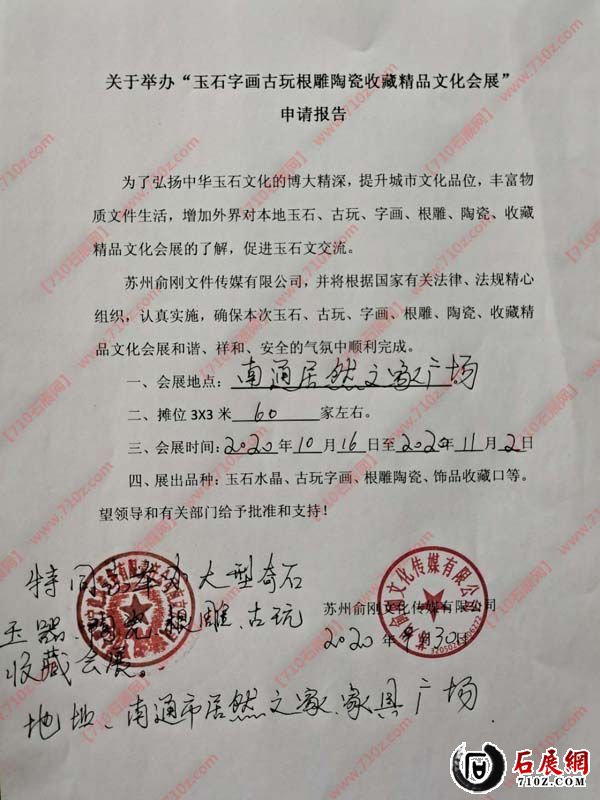 关于举办“玉石字画古玩根雕陶瓷收藏精品文化会展”
申请报告
为了弘扬中华玉石文化的博大精深，提升城市文化品位，丰富物
质文件生活，增加外界对本地玉石、古玩、字画、根雕、陶瓷、收藏
精品文化会展的了解，促进玉石文交流。
苏州俞刚文件传媒有限公司，并将根据国家有关法律、法规精心
组织，认真实施，确保本次玉石、古玩、字画、根雕、陶瓷、收藏精
品文化会展和谐、祥和、安全的气氛中顺利完成。
一、会展地点：南通居然之家广场
二、摊位 3X3 米 60 家左右。
三、会展时间：2020年10月16日至2020年11月2日
四、展出品种：玉石水晶、古玩字画、根雕陶瓷、饰品收藏口等。
望领导和有关部门给予批准和支持！
特同意举办大型奇石
玉器、陶瓷、根雕、古玩
收藏会展。
地址、南通市居然之家、家具广场
文化传媒有限公司
苏州俞刚文化传媒有限公司
2020年9月30日
【710石展网】www.710z.com
石展網
710Z.COM